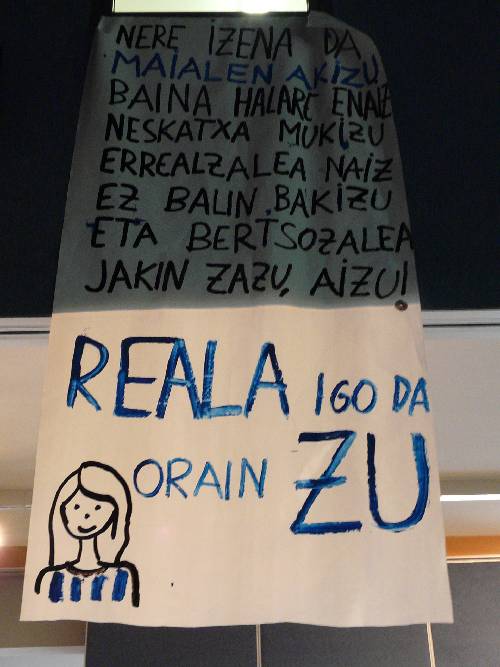 NERE IZENA DA
MAIALEN AKIZU
BAINA HALARE ENAIZ
NESKATXA MUKIZU
ERREALZALEA NAIZ
EZ BALIN BAKIZU
ETA BERTSOZALEA
JAKIN ZAZU, AIZU!
REALA IGO DA
ORAIN ZU